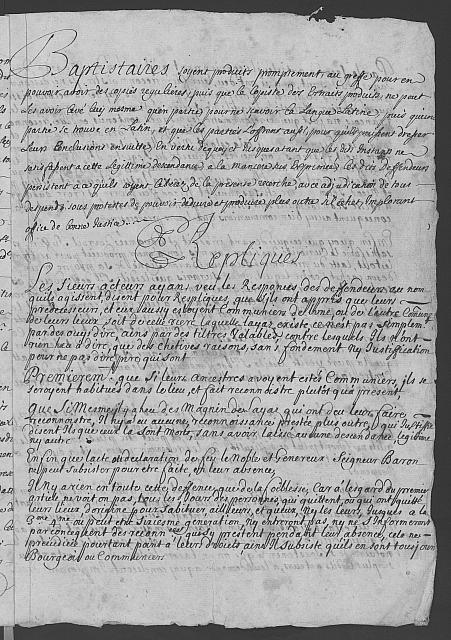 Baptistaires soyent produits promptement au greffe pour en
pouvoir avoir des copies regulieres, puis que le Copiste des Extraits produits, ne peut
les avoir levé luy mesme qu'en partie, pour ne sçavoir la Langue Latine, puis qu'une
partie se trouve en Latin, et que les parties l'offrent aussi, pour qu'ils puissent dresser
leurs Conclusions ensuitte, En voëte dequoy et jusques a tant que les dits Instans ne
satisfassent a cette legittime demande, a la maniere des Exprimés les dits Deffendeurs
persistent a ce qu'ils soyent de la presente recerche, avec adjudication de tous
despends, sous protestes de pouvoir deduire et produire plus outre s'il échet, Implorant
office de bonne Justice.
Repliques
Les Sieurs acteurs ayans veu les Responses des deffendeurs au nom
qu'ils agissent, disent pour Repliques, que s'ils ont appris que leurs
predecesseurs, et eux aussy estoyent Communiers de l'une, ou de l'autre Commune
de leurs lieux, soit de celle riere laquelle Layaz existe, ce n'est pas simplem.
par des ouy dire, ains par des tiltres Valables, contre lesquels Ils n'ont
rien heu à dire, que de chetives raisons, sans fondement, ny Justification
pour ne pas dire pire, qui sont
Premierem. que si leur Ancestres avoyent estés Communiers, ils se
seroyent habitués dans le lieu, et fait reconnoistre plutôt que a present.
Que si Mesme il y a heu des Magnin des ayaz qui ont deu leur faire
reconnoistre, Il n'y a eu aucune reconnoissance prestée plus outre, qui Justifie
disent Ils que ceux la sont morts, sans avoir laissé aucune descendance legitime
ny autre
Enfin que l'acte ou declaration de feu le Noble et Genereux Seigneur Baron
ne peut subsister pour être faite en leur absence,
Il n'y a rien en toute cette deffence, que de la foiblesse, Car a l'esgard du premier
article ne voit on pas, tous les Jours des personnes qui quittent, ou qui ont quitté
leurs lieux d'origine pour s'abituer, ailleurs, et que eux, Ny les leurs, Jusques a la
ou peut estre Sixiesme, generation, Ny entreront pas, ny ne s'Informeront
par consequent des reconn. qui s'y prestent pendant leur absence, cela ne
prejudicie pourtant point à leur droicts ains Il subsiste qu'ils en sont tousjours
Bourgeois ou Communiers